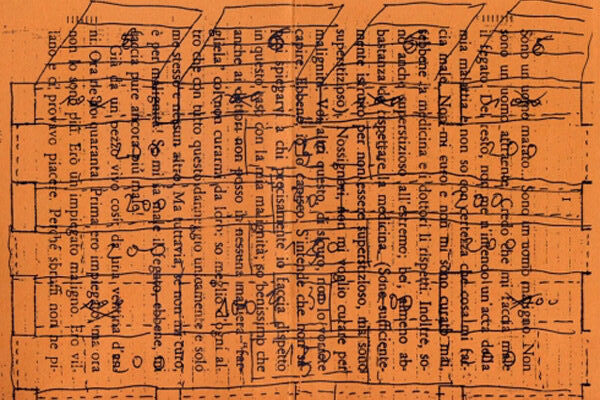 Sono un uomo malato... Sono un uomo maligno. Non
sono un uomo attraente. Credo che mi faccia male
il fegato. Del resto, non me ne intendo un'acca della
mia malattia e non so con certezza che cosa mi fac-
cia male. Non mi curo e non mi sono curato mai,
sebbene la medicina e i dottori li rispetti. Inoltre, so-
no anche superstizioso all'estremo; be', almeno ab-
bastanza da rispettare la medicina. (Sono sufficiente-
mente istruito per non essere superstizioso, ma sono
superstizioso). Nossignori, non mi voglio curare per
malignità. Voi altri questo, di sicuro, non lo volete
capire. Ebbene, io lo capisco. S'intende che non sa-
prei spiegarvi a chi precisamente io faccia dispetto
in questo caso con la mia malignità; so benissimo che
anche ai dottori non posso in nessuna maniera "far-
gliela" col non curarmi da loro; so meglio d'ogni al-
tro che con tutto questo danneggio unicamente e solo
me stesso e nessun altro. Ma tuttavia, se non mi curo,
è per malignità. Se mi fa male il fegato, ebbene, mi
faccia pure ancora più male!
Già da un pezzo vivo così: da una ventina d'an-
ni. Ora ne ho quaranta. Prima ero impiegato, ma ora
non lo sono più. Ero un impiegato maligno. Ero vil-
lano e ci provavo piacere. Perché sbruffi non ne pi-